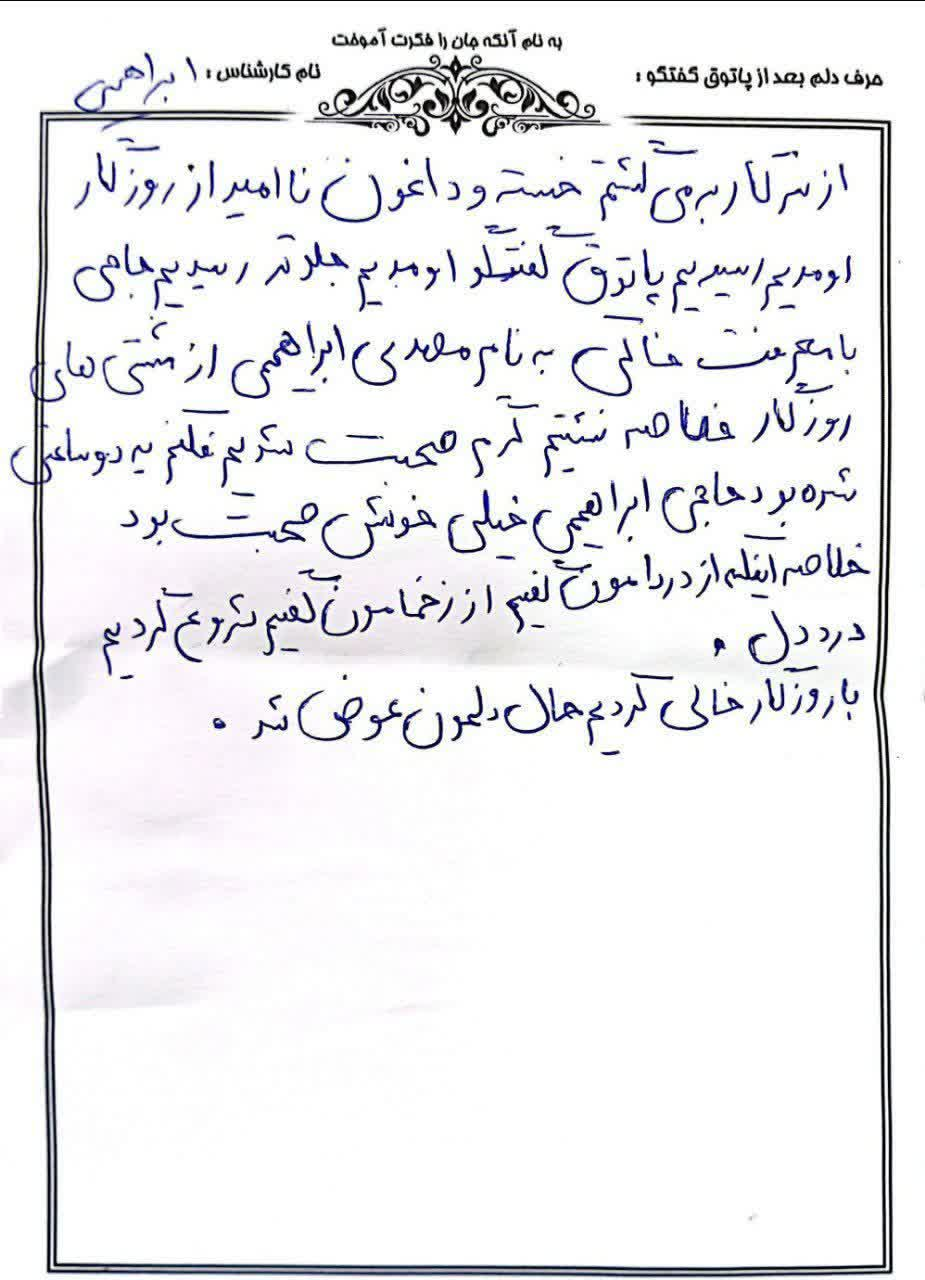 به نام آنکه جان را فکرت آموخت
حرف دلم بعد از پاتوق گفتگو :
نام کارشناس : ابراهیمی
از سر کار برمی گشتم خسته و داغون ناامید از روزگار
اومدیم رسیدیم پاتوق گفتگو اومدیم جلوتر رسیدیم حاجی
بامعرفت خاکی به نام مهدی ابراهیمی از مشتی های
روزگار خلاصه نشتیم گرم صحبت شدیم فکنم یه دو ساعتی
شده بود حاجی ابراهیمی خیلی خوش صحبت بود
خلاصه اینکه از دردامون گفیم از زخمامون گفیم شروع کردیم
درد دل .
با روزگار خالی کردیم حال دلمون عوض شد .